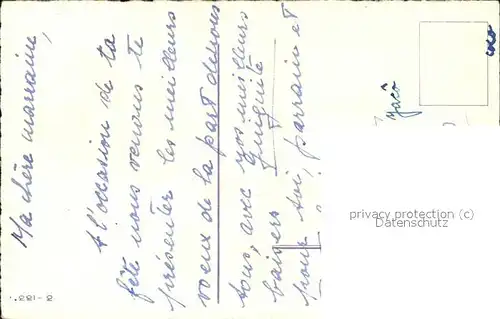 Ma chère marraine,
A l'occasion de ta
fête nous venons te
présenter les meilleurs
voeux de la part de nous
tous, avec nos meilleurs
baisers Guiguite
pour toi, parrain et
Jacô
coco
privacy protection (c)
Datenschutz